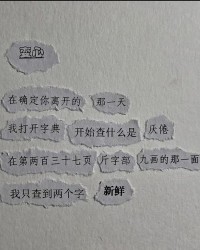 在确定你离开的 那一天
我打开字典 开始查什么是 厌倦
在第两百三十七页 斤字部 九画的那一面
我只查到两个字 新鲜